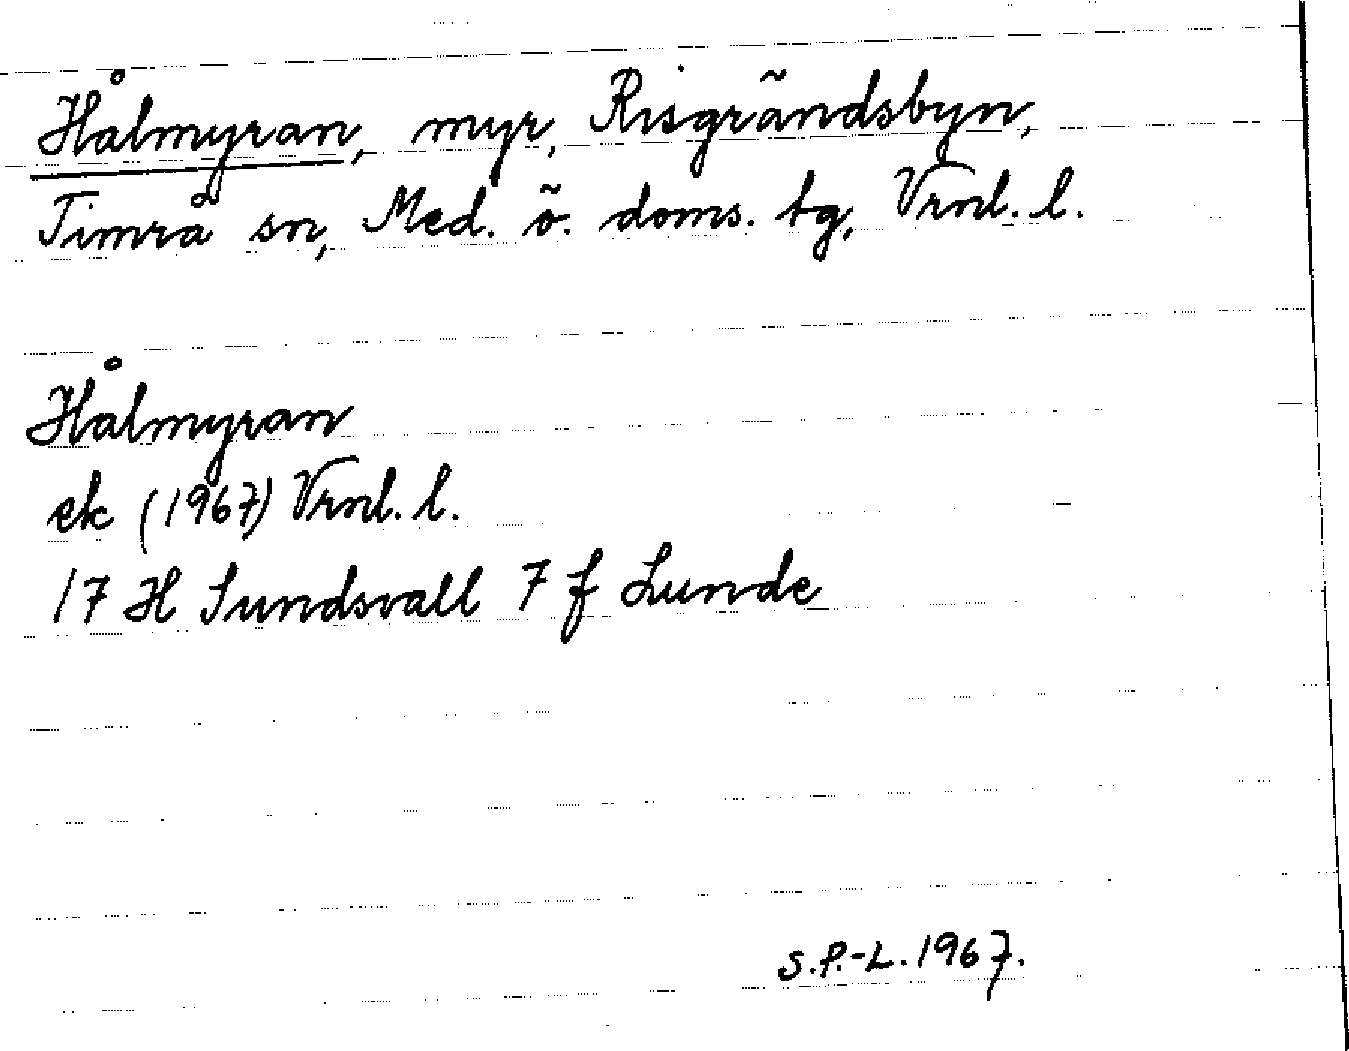 Hålmyran, myr, Risgrändsbyn,
Timrå sn, Med. ö. doms. tg, Vrnl. l.
Hålmyran
ek (1967) Vrnl. l.
17 H Sundsvall 7 f Lunde
S.P.-L. 1967.